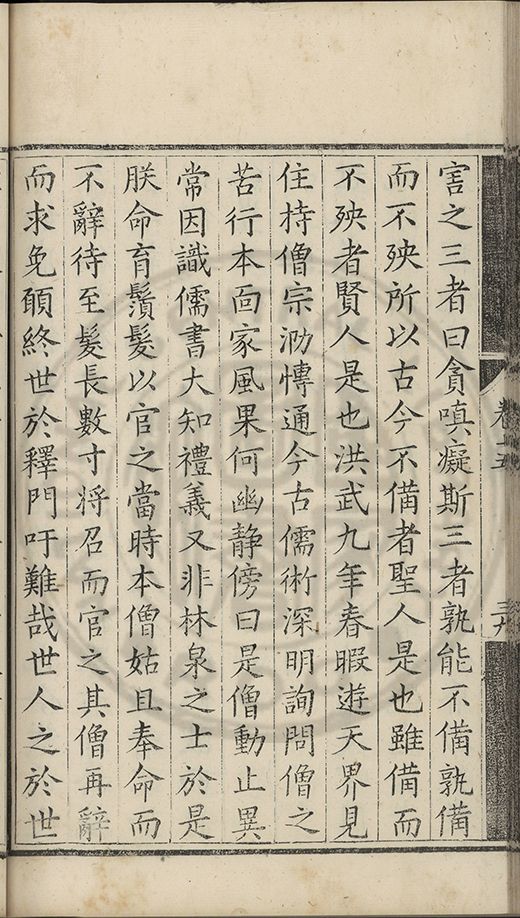 害之三者曰貪嗔癡斯三者孰能不備孰備
而不殃所以古今不備者聖人是也雖備而
不殃者賢人是也洪武九年春暇遊天界見
住持僧宗泐博通今古儒術深明詢問僧之
苦行本面家風果何幽静傍曰是僧動止異
常因識儒書大知禮義又非林泉之士於是
朕命育鬚髮以官之當時本僧姑且奉命而
不辭待至髮長數寸将召而官之其僧再辭
而求免願終世於釋門吁難哉世人之於世